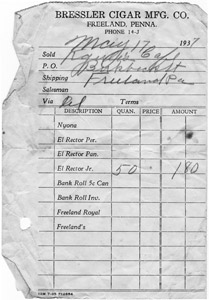 BRESSLER CIGAR MFG. CO.
FREELAND, PENNA.
PHONE 14-J
May 1937
Sold
P. O.
Shipping Freeland Pa
Salesman
Via Del Terms
DESCRIPTION QUAN. PRICE AMOUNT
Nyona
El Rector Per.
El Rector Pan.
El Rector Jr. 50 180
Bank Roll 5c Can
Bank Roll Inv.
Freeland Royal
Freeland's